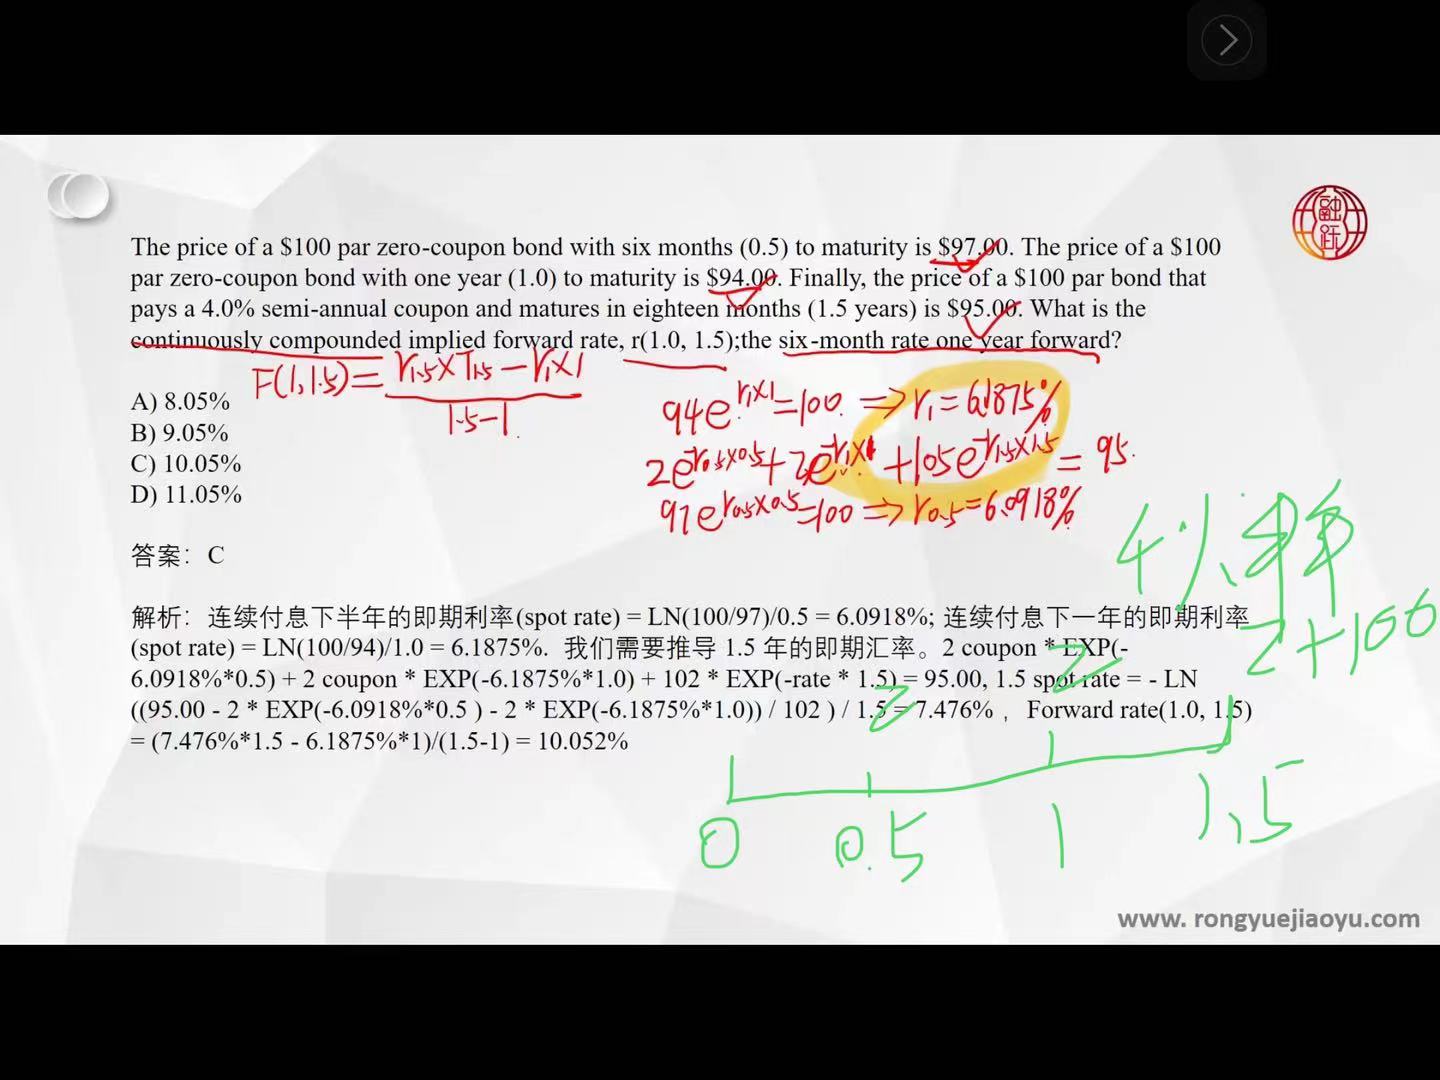 融
跃
The price of a $100 par zero-coupon bond with six months (0.5) to maturity is $97.00. The price of a $100
par zero-coupon bond with one year (1.0) to maturity is $94.00. Finally, the price of a $100 par bond that
pays a 4.0% semi-annual coupon and matures in eighteen months (1.5 years) is $95.00. What is the
continuously compounded implied forward rate, r(1.0, 1.5);the six-month rate one year forward?
F(1,1.5)= r1.5×T1.5 − r1×1
1.5−1
A) 8.05%
B) 9.05%
C) 10.05%
D) 11.05%
94e^{r1×1}=100 ⇒ r1=6.1875%
2e^{-r0.5×0.5}+2e^{-r1×1}+105e^{-r1.5×1.5}=95
97e^{r0.5×0.5}=100 ⇒ r0.5=6.0918%
答案：C
4%
2+100
解析：连续付息下半年的即期利率(spot rate) = LN(100/97)/0.5 = 6.0918%; 连续付息下一年的即期利率
(spot rate) = LN(100/94)/1.0 = 6.1875%. 我们需要推导 1.5 年的即期汇率。2 coupon * EXP(-
6.0918%*0.5) + 2 coupon * EXP(-6.1875%*1.0) + 102 * EXP(-rate * 1.5) = 95.00, 1.5 spot rate = - LN
((95.00 - 2 * EXP(-6.0918%*0.5 ) - 2 * EXP(-6.1875%*1.0)) / 102 ) / 1.5 = 7.476% ， Forward rate(1.0, 1.5)
= (7.476%*1.5 - 6.1875%*1)/(1.5-1) = 10.052%
2 2
0 0.5 1 1.5
www. rongyuejiaoyu.com